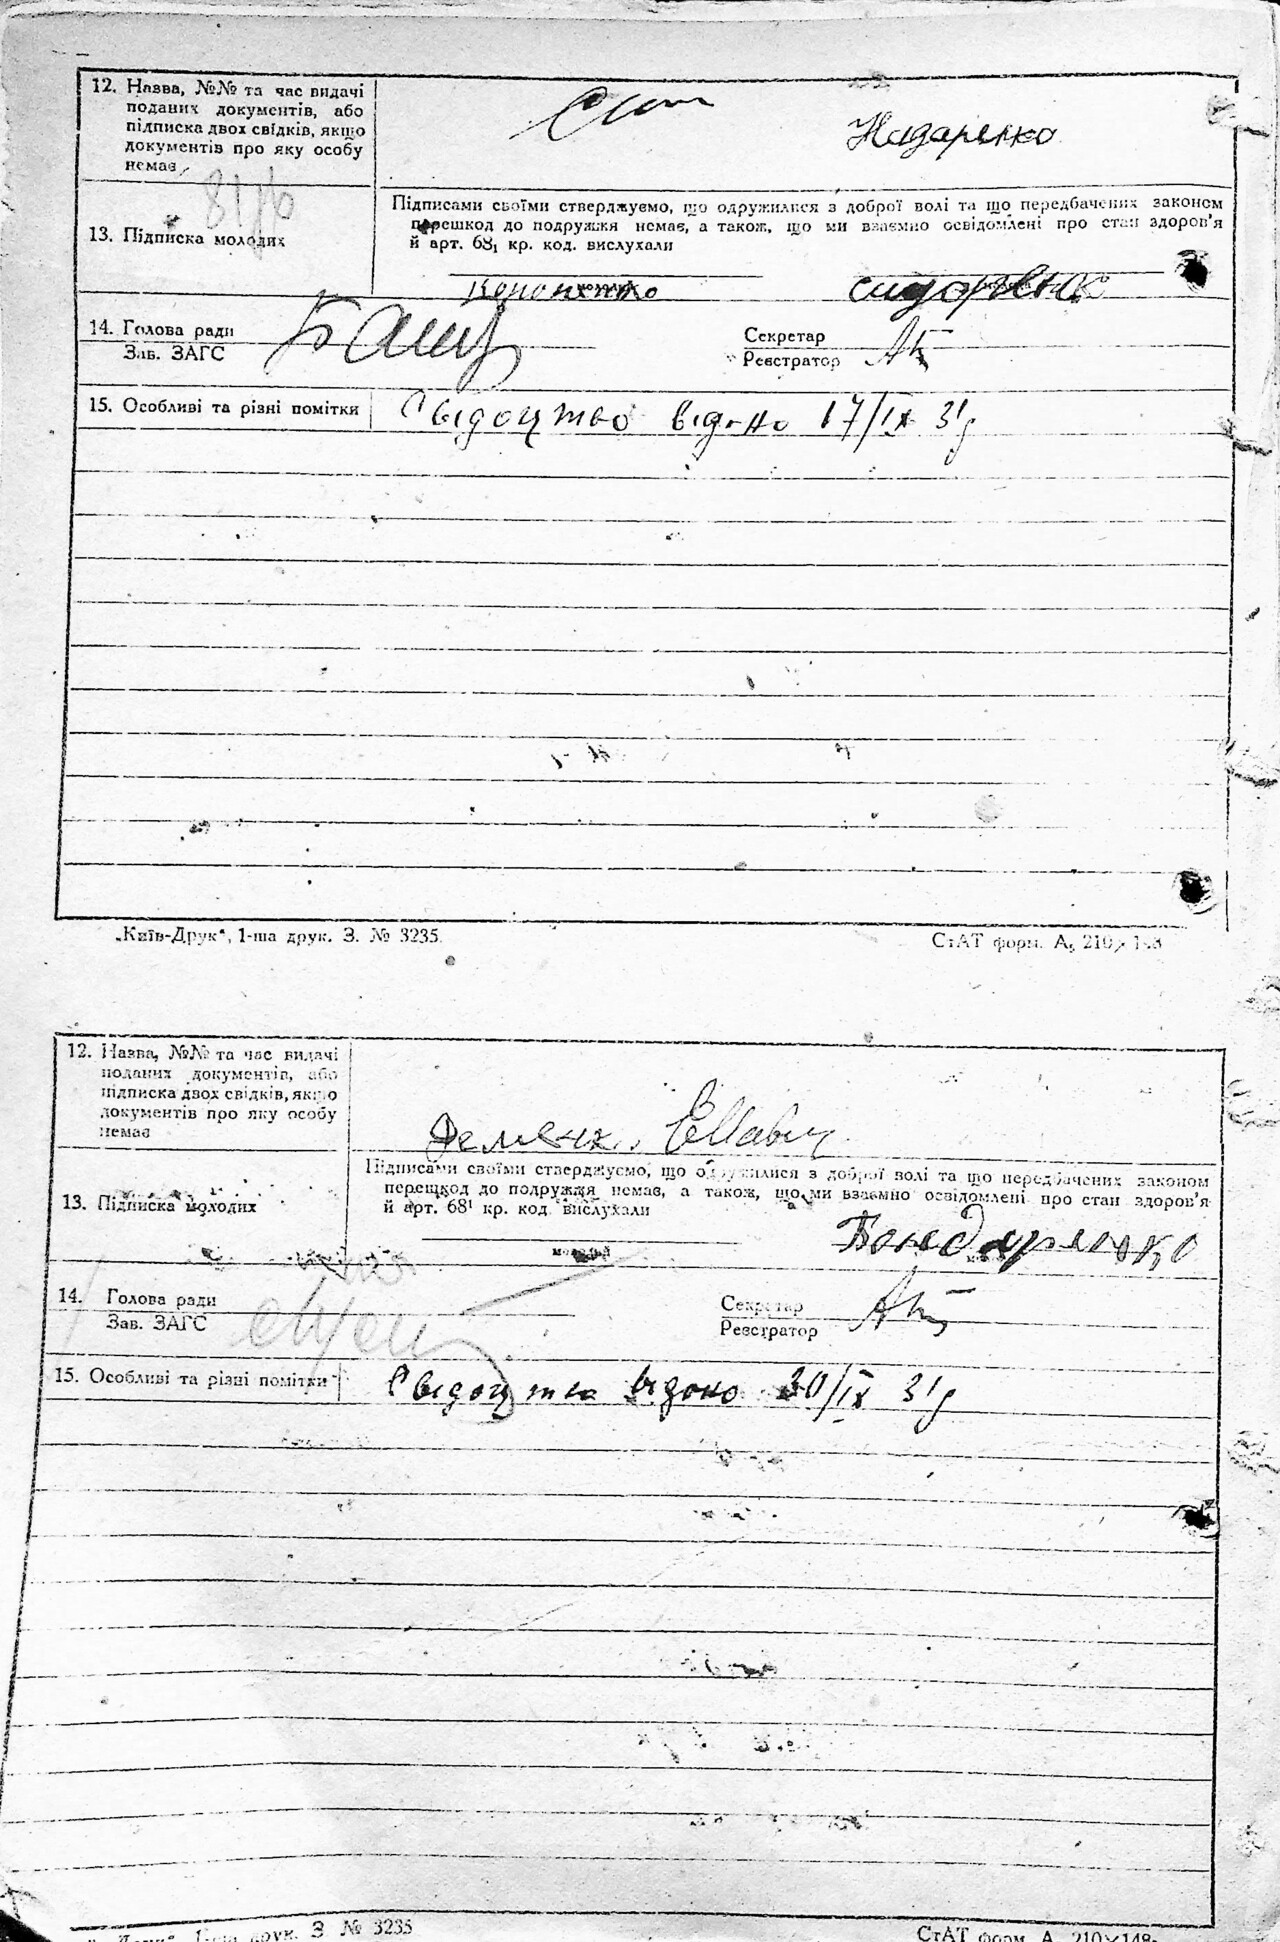 12. Назва, №№ та час видачі
поданих документів, або
підписка двох свідків, якщо
документів про яку особу
немає
Назаренко
13. Підписка молодих
Підписами своїми стверджуємо, що одружилися з доброї волі та що передбачених законом
перешкод до подружжя немає, а також, що ми взаємно освідомлені про стан здоров'я
й арт. 68₁ кр. код. вислухали
14. Голова ради
Зав. ЗАГС
Секретар
Реєстратор
15. Особливі та різні помітки
Свідоцтво відано 17/IX 31 р
„Київ-Друк“, 1-ша друк. З. № 3235.
СтАТ форм. А₅ 210×148
12. Назва, №№ та час видачі
поданих документів, або
підписка двох свідків, якщо
документів про яку особу
немає
13. Підписка молодих
Підписами своїми стверджуємо, що одружилися з доброї волі та що передбачених законом
перешкод до подружжя немає, а також, що ми взаємно освідомлені про стан здоров'я
й арт. 68¹ кр. код. вислухали
молодий
Бондаренко
14. Голова ради
Зав. ЗАГС
Секретар
Реєстратор
15. Особливі та різні помітки
Свідоцтво відано 30/IX 31 р
1-ша друк. З № 3235
СтАТ форм. А 210×148